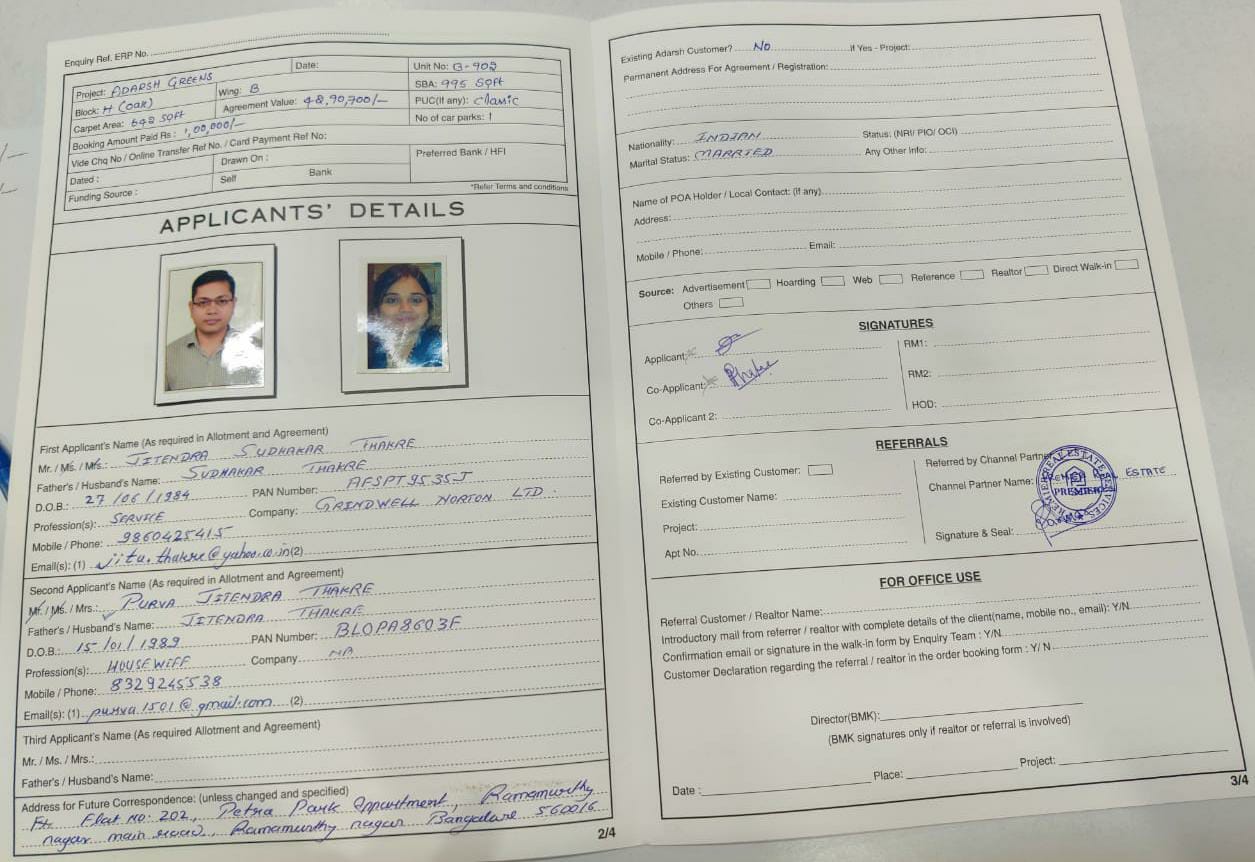 Enquiry Ref. ERP No.
Project: ADARSH GREENS Date: Unit No: B-902
Block: H (OAK) Wing: B SBA: 995 SQft
Carpet Area: 642 SQFT Agreement Value: 48,90,700/- PUC(If any): Classic
Booking Amount Paid Rs : 1,00,000/- No of car parks: 1
Vide Chq No / Online Transfer Ref No. / Card Payment Ref No:
Dated : Drawn On : Preferred Bank / HFI
Funding Source : Self Bank
*Refer Terms and conditions
APPLICANTS' DETAILS
First Applicant's Name (As required in Allotment and Agreement)
Mr. / Ms. / Mrs.: JITENDRA SUDHAKAR THAKRE
Father's / Husband's Name: SUDHAKAR THAKRE
D.O.B.: 27/06/1984 PAN Number: AFSPT9535J
Profession(s): SERVICE Company: GRINDWELL NORTON LTD.
Mobile / Phone: 9860425415
Email(s): (1) jitu.thakre@yahoo.co.in (2)
Second Applicant's Name (As required in Allotment and Agreement)
Mr. / Ms. / Mrs.: PURVA JITENDRA THAKRE
Father's / Husband's Name: JITENDRA THAKRE
D.O.B.: 15/01/1989 PAN Number: BLOPA8603F
Profession(s): HOUSEWIFF Company NA
Mobile / Phone: 8329245538
Email(s): (1) purva1501@gmail.com (2)
Third Applicant's Name (As required Allotment and Agreement)
Mr. / Ms. / Mrs.:
Father's / Husband's Name:
Address for Future Correspondence: (unless changed and specified)
Flat no: 202, Petra Park Appartment, Ramamurthy
nagar main road, Ramamurthy nagar Bangalore 560016
2/4
Existing Adarsh Customer? No If Yes - Project:
Permanent Address For Agreement / Registration:
Nationality: INDIAN Status: (NRI/ PIO/ OCI)
Marital Status: MARRIED Any Other Info:
Name of POA Holder / Local Contact: (if any)
Address:
Mobile / Phone: Email:
Source: Advertisement Hoarding Web Reference Realtor Direct Walk-in
Others
SIGNATURES
Applicant: RM1:
Co-Applicant: RM2:
Co-Applicant 2: HOD:
REFERRALS
Referred by Existing Customer: Referred by Channel Partner
Existing Customer Name: Channel Partner Name: ESTATE
Project:
Apt No. Signature & Seal:
REAL ESTATE SERVICES
PREMIER
FOR OFFICE USE
Referral Customer / Realtor Name:
Introductory mail from referrer / realtor with complete details of the client(name, mobile no., email): Y/N
Confirmation email or signature in the walk-in form by Enquiry Team : Y/N
Customer Declaration regarding the referral / realtor in the order booking form : Y/ N
Director(BMK):
(BMK signatures only if realtor or referral is involved)
Date : Place: Project:
3/4